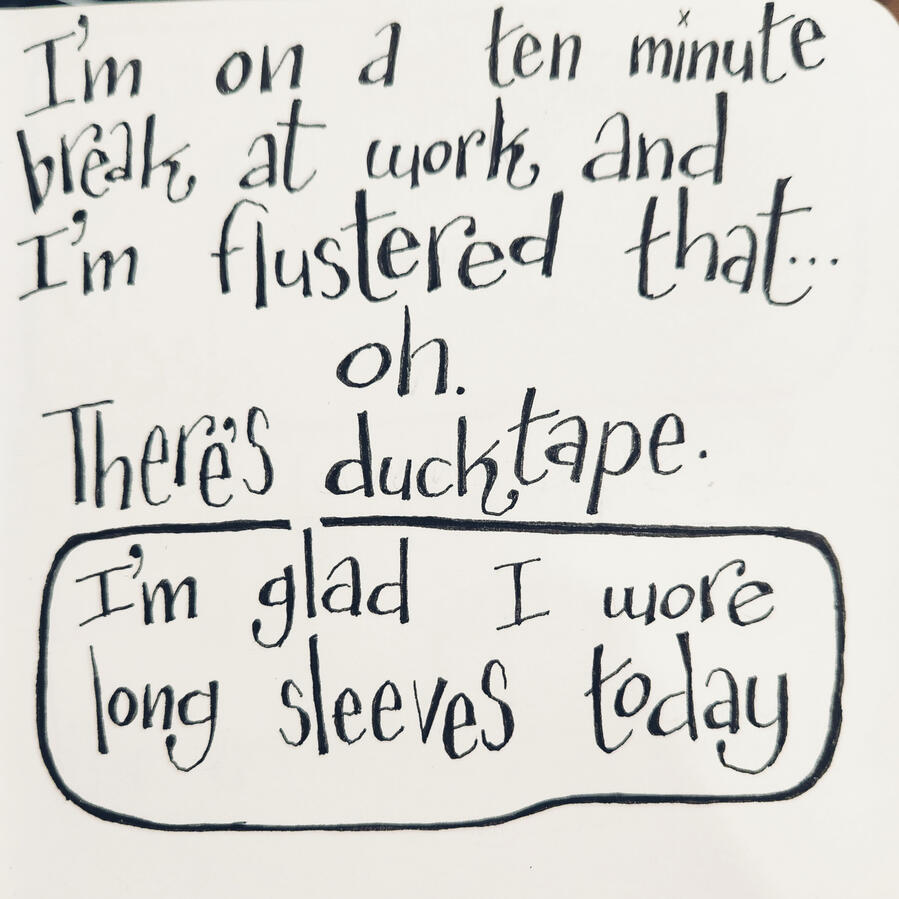 I'm on a ten minute
break at work and
I'm flustered that...
oh.
There's ducktape.
I'm glad I wore
long sleeves today